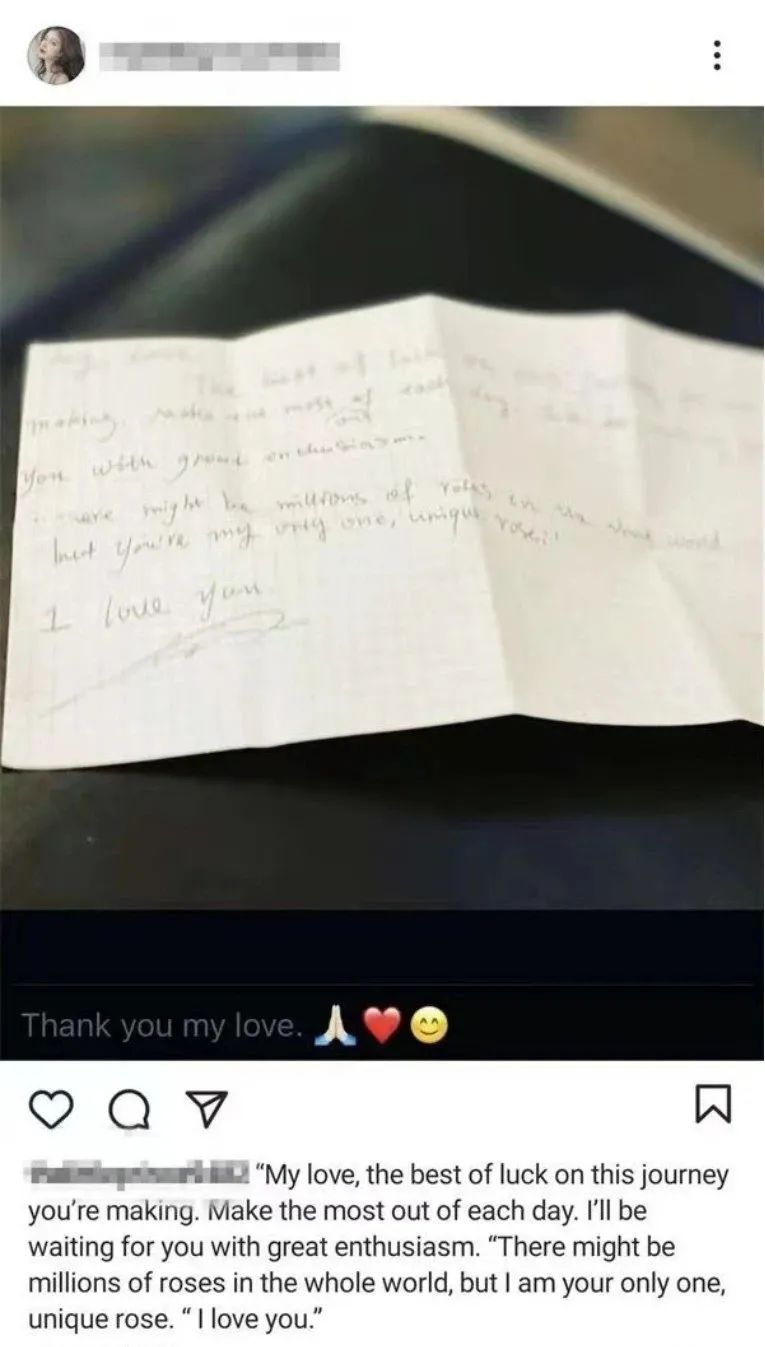 My love
The best of luck on
making. Make the most of each day.
out
you with great enthusiasm.
might be millions of roses in the whole world
but you're my only one, unique rose."
I love you
Thank you my love. 🙏🏻❤️😊
“My love, the best of luck on this journey
you’re making. Make the most out of each day. I’ll be
waiting for you with great enthusiasm. “There might be
millions of roses in the whole world, but I am your only one,
unique rose. “ I love you.”